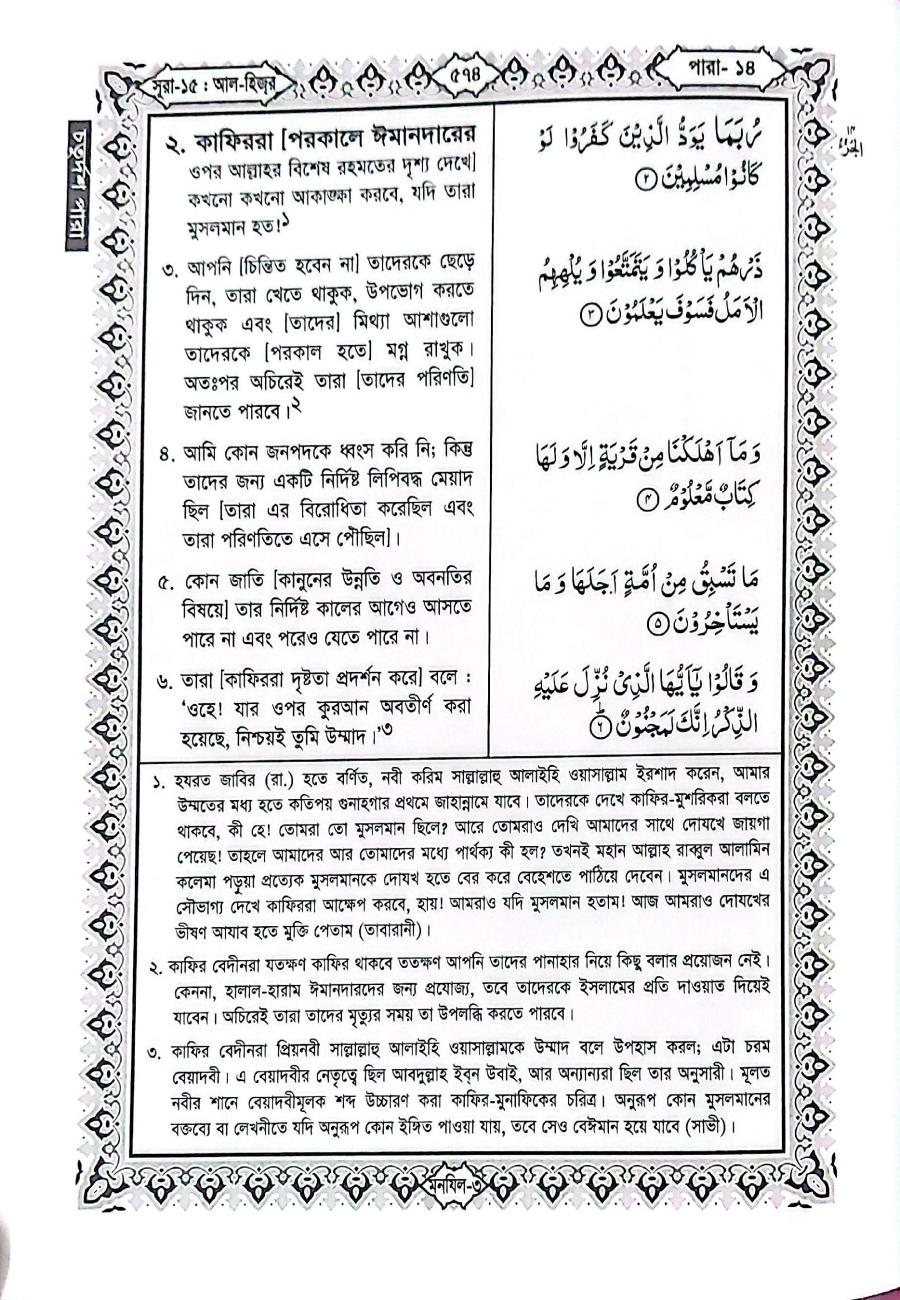 সূরা-১৫ : আল-হিজর
৫৭৪
পারা- ১৪
চতুর্দশ পারা
২. কাফিররা [পরকালে ঈমানদারের
ওপর আল্লাহর বিশেষ রহমতের দৃশ্য দেখে]
কখনো কখনো আকাঙ্ক্ষা করবে, যদি তারা
মুসলমান হত!১
৩. আপনি [চিন্তিত হবেন না] তাদেরকে ছেড়ে
দিন, তারা খেতে থাকুক, উপভোগ করতে
থাকুক এবং [তাদের] মিথ্যা আশাগুলো
তাদেরকে [পরকাল হতে] মগ্ন রাখুক।
অতঃপর অচিরেই তারা [তাদের পরিণতি]
জানতে পারবে।২
৪. আমি কোন জনপদকে ধ্বংস করি নি; কিন্তু
তাদের জন্য একটি নির্দিষ্ট লিপিবদ্ধ মেয়াদ
ছিল [তারা এর বিরোধিতা করেছিল এবং
তারা পরিণতিতে এসে পৌঁছিল]।
৫. কোন জাতি [কানুনের উন্নতি ও অবনতির
বিষয়ে] তার নির্দিষ্ট কালের আগেও আসতে
পারে না এবং পরেও যেতে পারে না।
৬. তারা [কাফিররা দৃষ্টতা প্রদর্শন করে] বলে :
‘ওহে! যার ওপর কুরআন অবতীর্ণ করা
হয়েছে, নিশ্চয়ই তুমি উম্মাদ।’৩
رُبَمَا يَوَدُّ الَّذِيْنَ كَفَرُوْا لَوْ
كَانُوْا مُسْلِمِيْنَ ②
ذَرْهُمْ يَاْكُلُوْا وَ يَتَمَتَّعُوْا وَ يُلْهِهِمُ
الْاَمَلُ فَسَوْفَ يَعْلَمُوْنَ ③
وَ مَاۤ اَهْلَكْنَا مِنْ قَرْيَةٍ اِلَّا وَ لَهَا
كِتَابٌ مَّعْلُوْمٌ ④
مَا تَسْبِقُ مِنْ اُمَّةٍ اَجَلَهَا وَ مَا
يَسْتَاْخِرُوْنَ ⑤
وَ قَالُوْا يٰۤاَيُّهَا الَّذِيْ نُزِّلَ عَلَيْهِ
الذِّكْرُ اِنَّكَ لَمَجْنُوْنٌ ⑥
১. হযরত জাবির (রা.) হতে বর্ণিত, নবী করিম সাল্লাল্লাহু আলাইহি ওয়াসাল্লাম ইরশাদ করেন, আমার
উম্মতের মধ্য হতে কতিপয় গুনাহগার প্রথমে জাহান্নামে যাবে। তাদেরকে দেখে কাফির-মুশরিকরা বলতে
থাকবে, কী হে! তোমরা তো মুসলমান ছিলে? আরে তোমরাও দেখি আমাদের সাথে দোযখে জায়গা
পেয়েছ! তাহলে আমাদের আর তোমাদের মধ্যে পার্থক্য কী হল? তখনই মহান আল্লাহ রাব্বুল আলামিন
কলেমা পড়ুয়া প্রত্যেক মুসলমানকে দোযখ হতে বের করে বেহেশতে পাঠিয়ে দেবেন। মুসলমানদের এ
সৌভাগ্য দেখে কাফিররা আক্ষেপ করবে, হায়! আমরাও যদি মুসলমান হতাম! আজ আমরাও দোযখের
ভীষণ আযাব হতে মুক্তি পেতাম (তাবারানী)।
২. কাফির বেদীনরা যতক্ষণ কাফির থাকবে ততক্ষণ আপনি তাদের পানাহার নিয়ে কিছু বলার প্রয়োজন নেই।
কেননা, হালাল-হারাম ঈমানদারদের জন্য প্রযোজ্য, তবে তাদেরকে ইসলামের প্রতি দাওয়াত দিয়েই
যাবেন। অচিরেই তারা তাদের মৃত্যুর সময় তা উপলব্ধি করতে পারবে।
৩. কাফির বেদীনরা প্রিয়নবী সাল্লাল্লাহু আলাইহি ওয়াসাল্লামকে উম্মাদ বলে উপহাস করল; এটা চরম
বেয়াদবী। এ বেয়াদবীর নেতৃত্বে ছিল আবদুল্লাহ ইব্‌ন উবাই, আর অন্যান্যরা ছিল তার অনুসারী। মূলত
নবীর শানে বেয়াদবীমূলক শব্দ উচ্চারণ করা কাফির-মুনাফিকের চরিত্র। অনুরূপ কোন মুসলমানের
বক্তব্যে বা লেখনীতে যদি অনুরূপ কোন ইঙ্গিত পাওয়া যায়, তবে সেও বেঈমান হয়ে যাবে (সাভী)।
মনযিল-৩